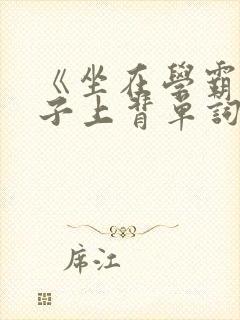 《坐在學霸
子上背單詞
席江